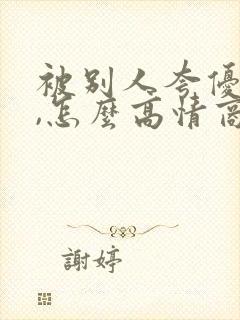 被別人夸優
,怎麼高情商
謝婷